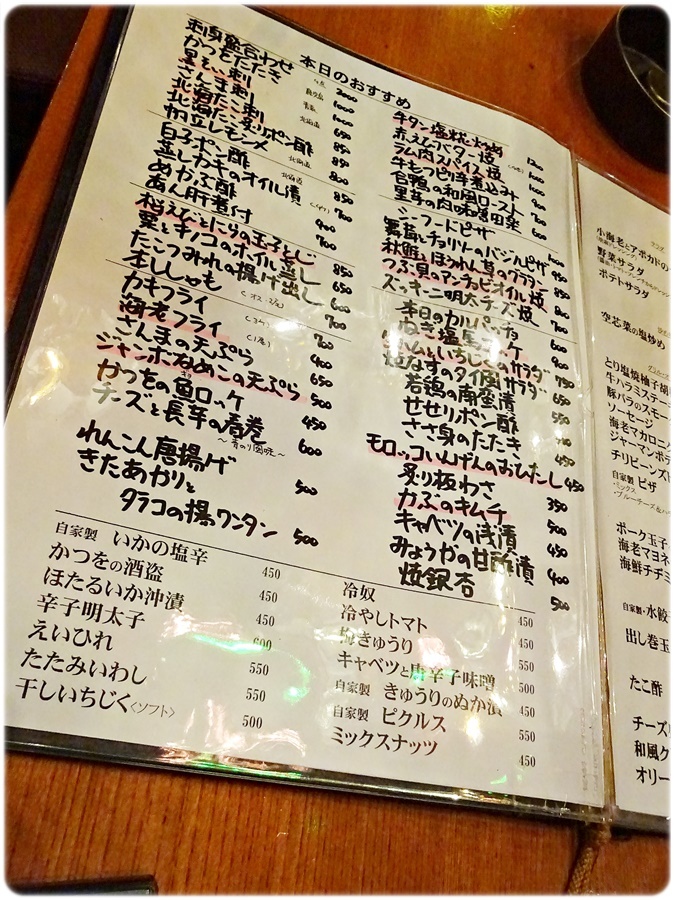 本日のおすすめ
刺身盛合わせ 2000
かつをたたき 1000
黒そい刺 青森 1000
さんま刺 北海道 650
北海たこ刺 850
北海たこ炙りポン酢 850
帆立レモン〆 北海道 800
白子ポン酢 850
蒸しカキのオイル漬 700
めかぶ酢
あん肝煮付 900
桜えびとにらの玉子とじ 700
栗とキノコのホイル蒸し 850
たこつみれの揚げ出し 650
本ししゃも 600
カキフライ 700
海老フライ 400
さんまの天ぷら 650
ジャンボなめこの天ぷら 500
かつをの魚ロッケ 450
チーズと長芋の春巻 600
〜青のり風味〜
れんこん唐揚げ 500
きたあかりと
タラコの揚ワンタン 500
牛タン塩糀炒め 1200
赤えびバター焼
ラム肉スパイス焼 1000
牛もつピリ辛煮込み 900
合鴨の和風ロースト 700
里芋の肉味噌田楽 600
シーフードピザ 1000
舞茸とチョリソのバジルピザ 950
秋鮭とほうれん草のグラタン 850
つぶ貝のアンチョビオイル焼 800
ズッキーニ明太チーズ焼 700
本日のカルパッチョ
ねぎ塩ユッケ 900
生ハムといちじくのサラダ 750
焼なすのタイ風サラダ 650
若鶏の南蛮漬 550
せせりポン酢
ささ身のたたき 450
モロッコいんげんのおひたし 450
炙り板わさ
かぶのキムチ 350
キャベツの浅漬 500
みょうがの甘酢漬 400
焼銀杏 500
自家製 いかの塩辛 450
かつをの酒盗 450
ほたるいか沖漬 450
辛子明太子 600
えいひれ 550
たたみいわし 550
干しいちじく〈ソフト〉 500
冷奴 450
冷やしトマト 450
きゅうり
キャベツと唐辛子味噌 500
自家製 きゅうりのぬか漬 450
自家製 ピクルス 550
ミックスナッツ 450
小海老とアボカドの
野菜サラダ
ポテトサラダ
空芯菜の塩炒め
とり塩焼柚子胡
牛ハラミステー
豚バラのスモー
ソーセージ
海老マカロニ
ジャーマンポ
チリビーンズ
自家製 ピザ
・ミックス
・ブルーチーズ
ポーク玉子
海老マヨネ
海鮮チヂミ
自家製・水餃
出し巻玉
たこ酢
チーズ
和風ク
オリー